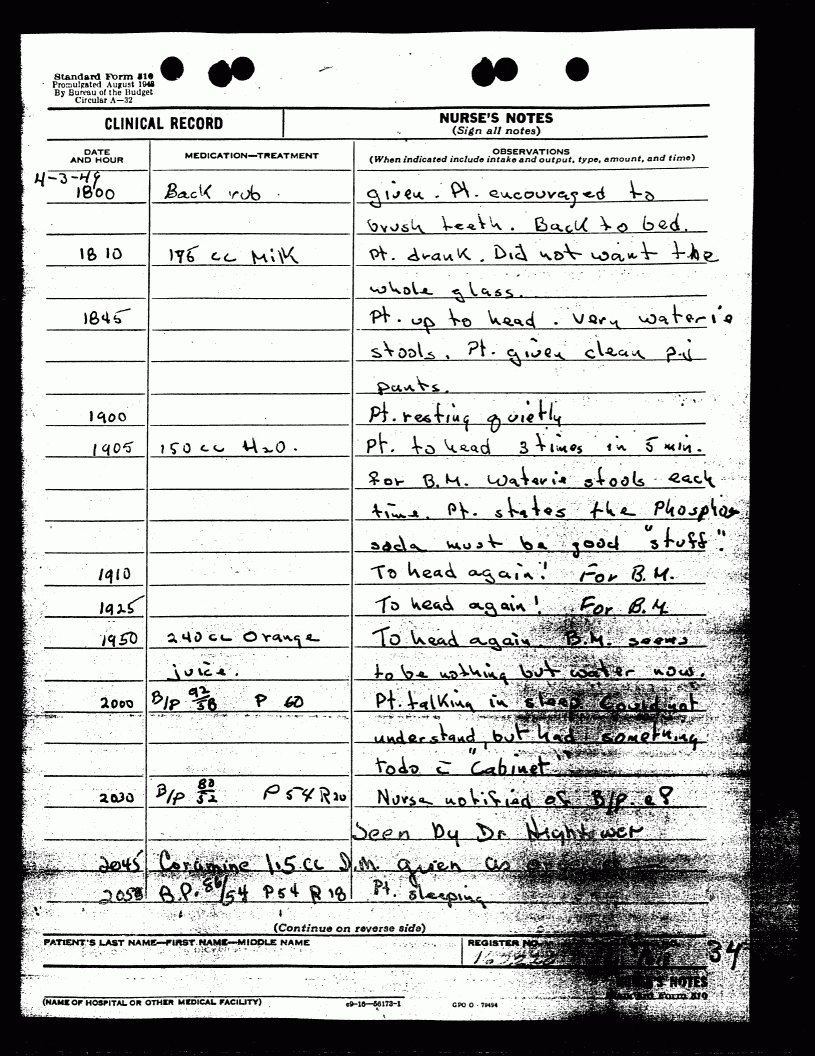 Standard Form 510
Promulgated August 1948
By Bureau of the Budget
Circular A—32
CLINICAL RECORD
NURSE'S NOTES
(Sign all notes)
DATE AND HOUR
MEDICATION—TREATMENT
OBSERVATIONS
(When indicated include intake and output, type, amount, and time)
4-3-49
1800 Back rub. given. Pt. encouraged to
brush teeth. Back to bed.
1810 175 cc Milk Pt. drank. Did not want the
whole glass.
1845 Pt. up to head. Very waterie
stools. Pt. given clean p-j
pants.
1900 Pt. resting quietly
1905 150 cc H2O. Pt. to head 3 times in 5 min.
for B.M. Waterie stools each
time. Pt. states the Phospho
soda must be good "stuff".
1910 To head again! For B.M.
1925 To head again! For B.M
1950 240 cc Orange To head again. B.M. seems
juice. to be nothing but water now.
2000 B/P 92/58 P 60 Pt. talking in sleep Could not
understand, but had something
todo c̄ "Cabinet"
2030 B/P 80/52 P 54 R 20 Nurse notified of B/P.
Seen by Dr Hightower
2045 Coramine 1.5 cc I.M. given as
2058 B.P. 86/54 P54 R 18 Pt. sleeping
(Continue on reverse side)
PATIENT'S LAST NAME—FIRST NAME—MIDDLE NAME
REGISTER NO.
34
(NAME OF HOSPITAL OR OTHER MEDICAL FACILITY)
c9—16—56173-1
GPO O - 79494
NURSE'S NOTES
Standard Form 510